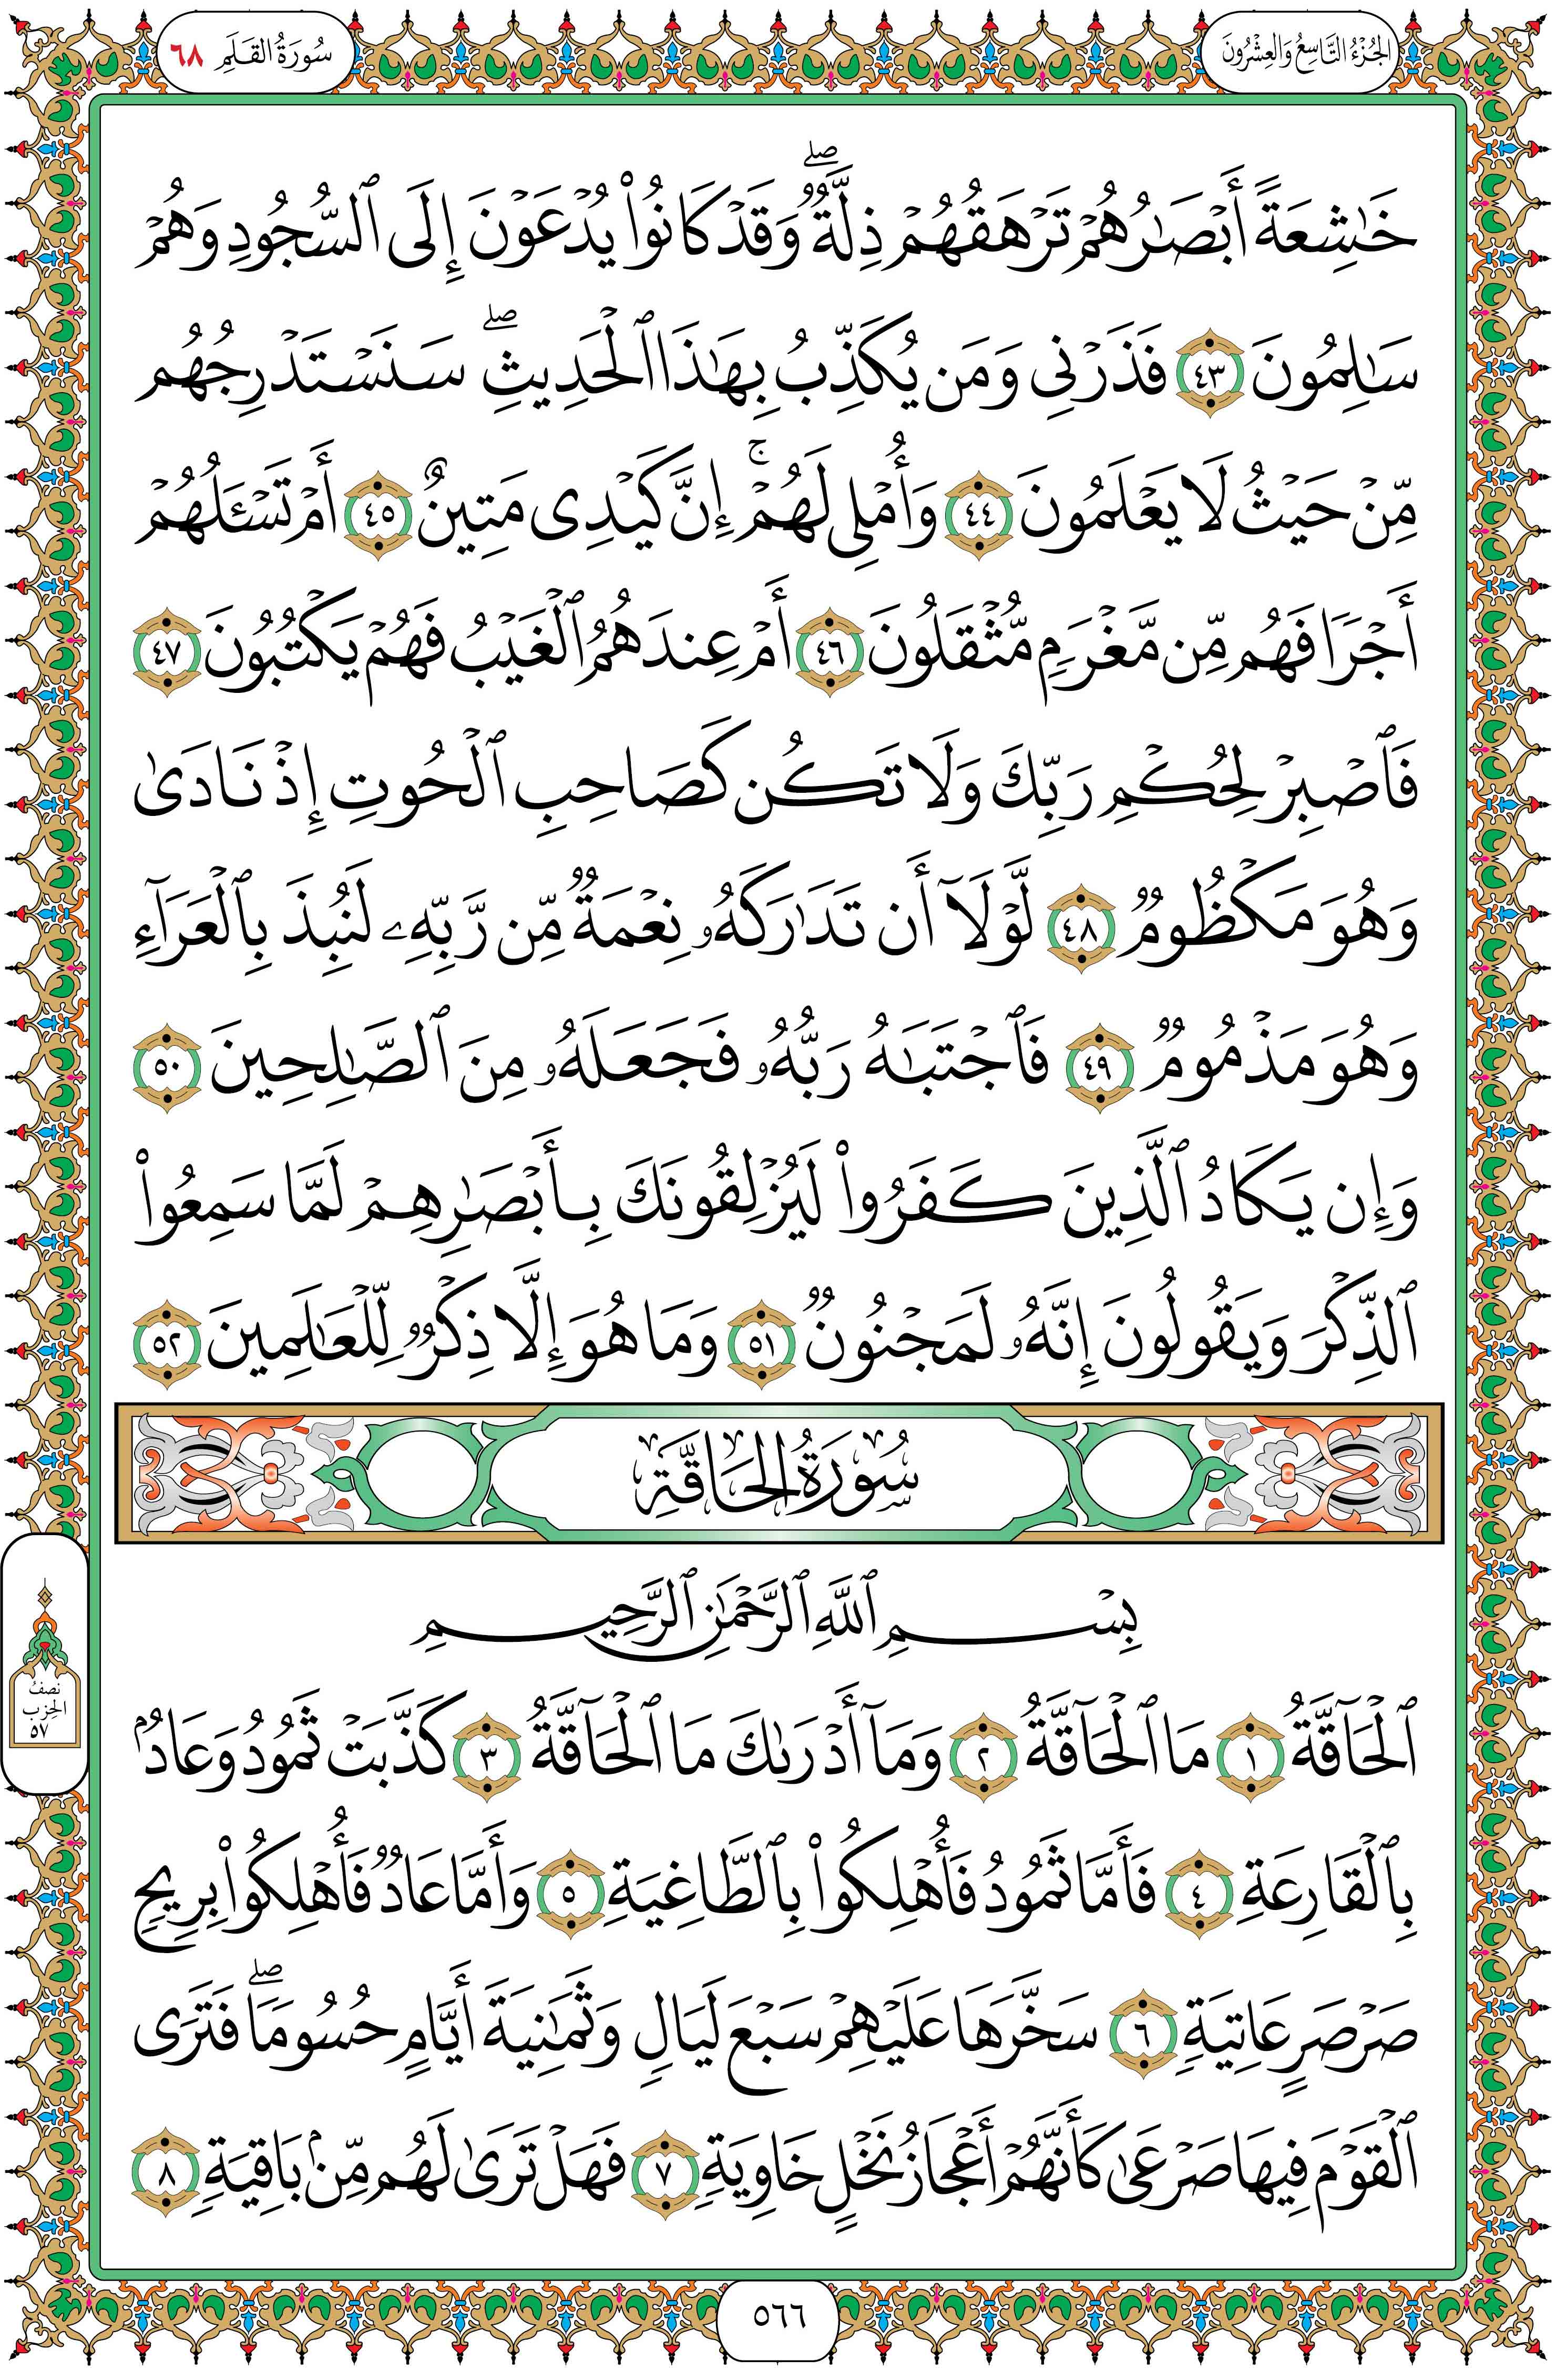 الجُزْءُ التَّاسِعُ وَالعِشْرُونَ
سُورَةُ القَلَمِ ٦٨
خَٰشِعَةً أَبْصَٰرُهُمْ تَرْهَقُهُمْ ذِلَّةٌ ۖ وَقَدْ كَانُوا۟ يُدْعَوْنَ إِلَى ٱلسُّجُودِ وَهُمْ
سَٰلِمُونَ ٤٣ فَذَرْنِى وَمَن يُكَذِّبُ بِهَٰذَا ٱلْحَدِيثِ ۖ سَنَسْتَدْرِجُهُم
مِّنْ حَيْثُ لَا يَعْلَمُونَ ٤٤ وَأُمْلِى لَهُمْ ۚ إِنَّ كَيْدِى مَتِينٌ ٤٥ أَمْ تَسْـَٔلُهُمْ
أَجْرًا فَهُم مِّن مَّغْرَمٍ مُّثْقَلُونَ ٤٦ أَمْ عِندَهُمُ ٱلْغَيْبُ فَهُمْ يَكْتُبُونَ ٤٧
فَٱصْبِرْ لِحُكْمِ رَبِّكَ وَلَا تَكُن كَصَاحِبِ ٱلْحُوتِ إِذْ نَادَىٰ
وَهُوَ مَكْظُومٌ ٤٨ لَّوْلَآ أَن تَدَٰرَكَهُۥ نِعْمَةٌ مِّن رَّبِّهِۦ لَنُبِذَ بِٱلْعَرَآءِ
وَهُوَ مَذْمُومٌ ٤٩ فَٱجْتَبَٰهُ رَبُّهُۥ فَجَعَلَهُۥ مِنَ ٱلصَّٰلِحِينَ ٥٠
وَإِن يَكَادُ ٱلَّذِينَ كَفَرُوا۟ لَيُزْلِقُونَكَ بِأَبْصَٰرِهِمْ لَمَّا سَمِعُوا۟
ٱلذِّكْرَ وَيَقُولُونَ إِنَّهُۥ لَمَجْنُونٌ ٥١ وَمَا هُوَ إِلَّا ذِكْرٌ لِّلْعَٰلَمِينَ ٥٢
سُورَةُ الحَاقَّةِ
بِسْمِ ٱللَّهِ ٱلرَّحْمَٰنِ ٱلرَّحِيمِ
ٱلْحَآقَّةُ ١ مَا ٱلْحَآقَّةُ ٢ وَمَآ أَدْرَىٰكَ مَا ٱلْحَآقَّةُ ٣ كَذَّبَتْ ثَمُودُ وَعَادٌۢ
بِٱلْقَارِعَةِ ٤ فَأَمَّا ثَمُودُ فَأُهْلِكُوا۟ بِٱلطَّاغِيَةِ ٥ وَأَمَّا عَادٌ فَأُهْلِكُوا۟ بِرِيحٍ
صَرْصَرٍ عَاتِيَةٍ ٦ سَخَّرَهَا عَلَيْهِمْ سَبْعَ لَيَالٍ وَثَمَٰنِيَةَ أَيَّامٍ حُسُومًا ۖ فَتَرَى
ٱلْقَوْمَ فِيهَا صَرْعَىٰ كَأَنَّهُمْ أَعْجَازُ نَخْلٍ خَاوِيَةٍ ٧ فَهَلْ تَرَىٰ لَهُم مِّنۢ بَاقِيَةٍ ٨
نصفُ
الحِزب
٥٧
٥٦٦